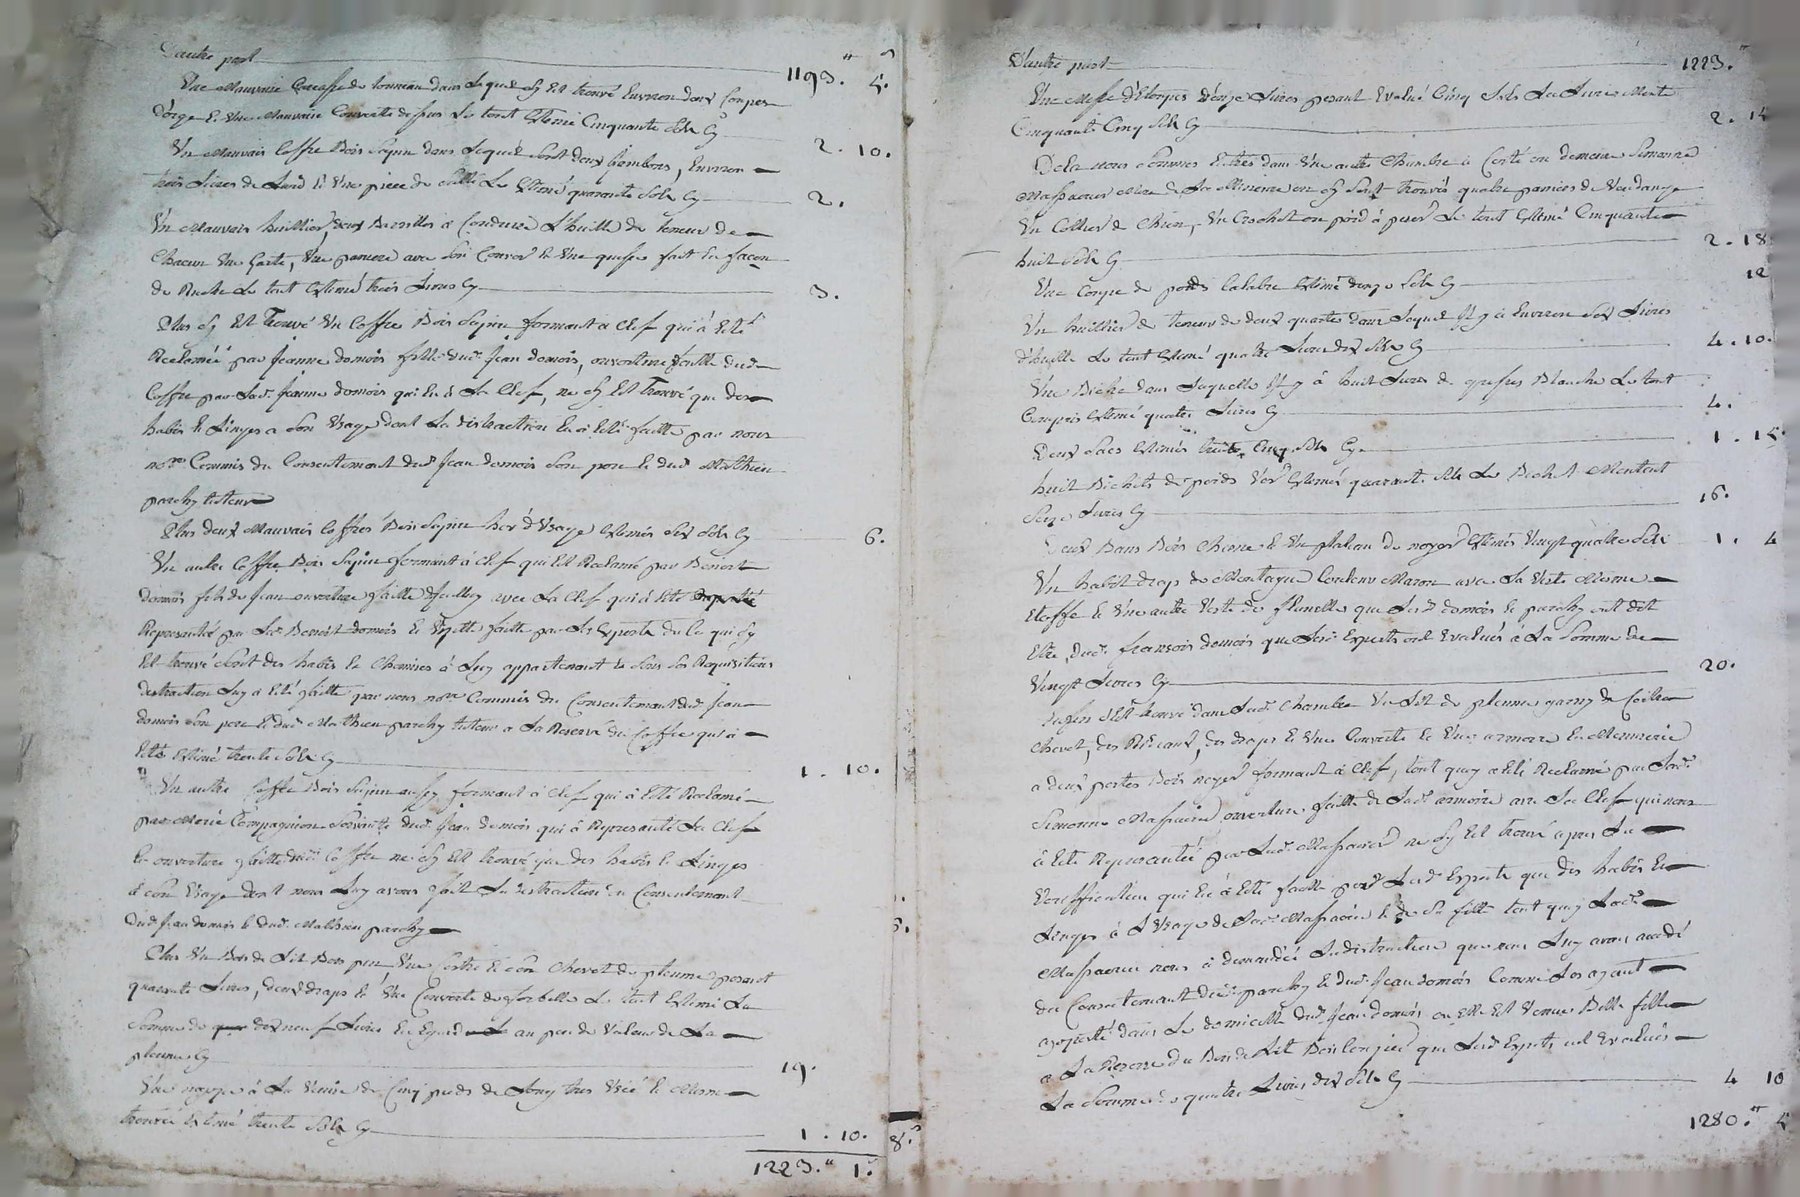 D'autre part 1193.# 5.s
Une Mauvaise Carcasse de tonneau dans Lequel Sy Est trouvé Environ deux Coupes
d'orge & une Mauvaise Couverte dessus Le tout Estimé Cinquante Sols Cy
2. 10.
Un Mauvais Coffre Bois Sapin dans Lequel Sont deux Jambons, Environ
trois Livres de Lard & Une piece de Le Estimé quarante Sols Cy
2.
Un Mauvais huillier, deux Barrilles a Conduire L'huille de teneur de
Chacun Une quarte, Une paniere avec Son Couver & Une fait En façon
de Ruche Le tout Estimé trois Livres Cy 3.
Plus Sy Est Trouvé Un Coffre Bois Sapin fermant a Clef qui a Eté
Reclamé par Jeanne domois fille dud. Jean domois, ouverture faitte dud.
Coffre par Lad. Jeanne domois qui En à La Clef, ne Sy Est Trouvé que des
habits & Linges a Son Usage dont La distraction En a Eté faitte par nous
nore. Commis du Consentement dud. Jean domois Son pere & dud. Mathieu
parchy tuteur
Plus deux Mauvais Coffres Bois Sapin hors d'Usage Estimés Six Sols Cy 6.
Un autre Coffre Bois Sapin fermant à Clef qui Est Reclamé par Benoit
domois fils de Jean ouverture faitte avec La Clef qui à Eté
Representée par Led. Benoit domois & faitte par Les Experts de Ce qui Sy
Est trouvé Soit des habits & Chemises à Luy appartenant & Sous Ses Requisitions
distraction Luy a Eté faitte par nous nore. Commis du Consentement dud. Jean
domois Son pere & dud. Mathieu parchy tuteur a La Reserve du Coffre qui à
Eté Estimé trente Sols Cy 1. 10.
Un autre Coffre Bois Sapin aussy fermant à Clef qui à Eté Reclamé
par Marie Compagnion Servante dud. Jean domois qui à Representé La Clef
& ouverture faitte dud. Coffre ne Sy Est trouvé que des habits & Linges
à Son Usage dont nous Luy avons fait La distraction du Consentement
dud. Jean domois & dud. Mathieu parchy
Plus Un Bois de Lit Bois pin, Une Coitre & Son Chevet de plume pesant
quarante Livres, deux draps & Une Couverte de Le tout Estimé La
Somme de dixneuf Livres En Egard au peu de Valeur de La
plume Cy 19.
Une nappe à La Venise de Cinq pieds de Long tres Usée & Même
trouée Estimé trente Sols Cy 1. 10.
1223.# 1.s
8.s
D'autre part 1223.#
Une Masse d'Etoupes d'onze Livres pesant Evalué Cinq Sols La Livre Monte
Cinquante Cinq Sols Cy 2. 15
Dela nous Sommes Entrés dans Une autre Chambre à Coté ou demeure Simonne
Massacrier Mere de La Mineure ou Sy Sont trouvés quatre paniers de Vendange
Un Collier de Chien, Un Crochet ou poid à peser Le tout Estimé Cinquante
huit Sols Cy 2. 18
Une Coupe de poids Estimé douze Sols Cy 12
Un huillier de teneur de deux quartes dans Lequel Il y a Environ Six Livres
d'huille Le tout Estimé quatre Livres dix Sols Cy 4. 10.
Une Biche dans Laquelle Il y à huit Livres de Blanche Le tout
Compris Estimé quatre Livres Cy 4.
Deux Sacs Estimés trente Cinq Sols Cy 1. 15.
huit Bichets de poids Estimés quarante Sols Le Bichet Montent
Seize Livres Cy 16.
Deux Bans Bois Chene & Un plateau de noyer Estimés Vingt quatre Sols 1. 4
Un habit drap de Montagne Couleur Maron avec Sa Veste Même
Etoffe & Une autre Veste de flanelle que Lesd. domois & parchy ont dit
Etre dud. françois domois que Lesd. Experts ont Evalués à La Somme de
Vingt Livres Cy 20.
Enfin S'Est trouvé dans Lad. Chambre Un Lit de plume garny de Coitre
Chevet, des Rideaux, des draps & Une Couverte & Une armoire En Menuiserie
a deux portes Bois noyer fermant à Clef, tout quoy a Eté Reclamé par Lad.
Simonne Massacrier ouverture faitte de Lad. armoire avec La Clef qui nous
à Eté Representée par Lad. Massacrier ne Sy Est trouvé apres La
Verification qui En à Eté faitte par Lesd. Experts que des habits &
Linges à L'Usage de Lad. Massacrier & de Sa fille tout quoy Lad.
Massacrier nous à demandée La distraction que nous Luy avons accordé
du Consentement dud. parchy & dud. Jean domois Comme Les ayant
apporté dans Le domicille dud. Jean domois ou Elle Est Venue Belle fille
a La Reserve du Bois de Lit Bois Cerisier que Lesd. Experts ont Evalués
La Somme de quatre Livres dix Sols Cy 4 10
1280.# 5